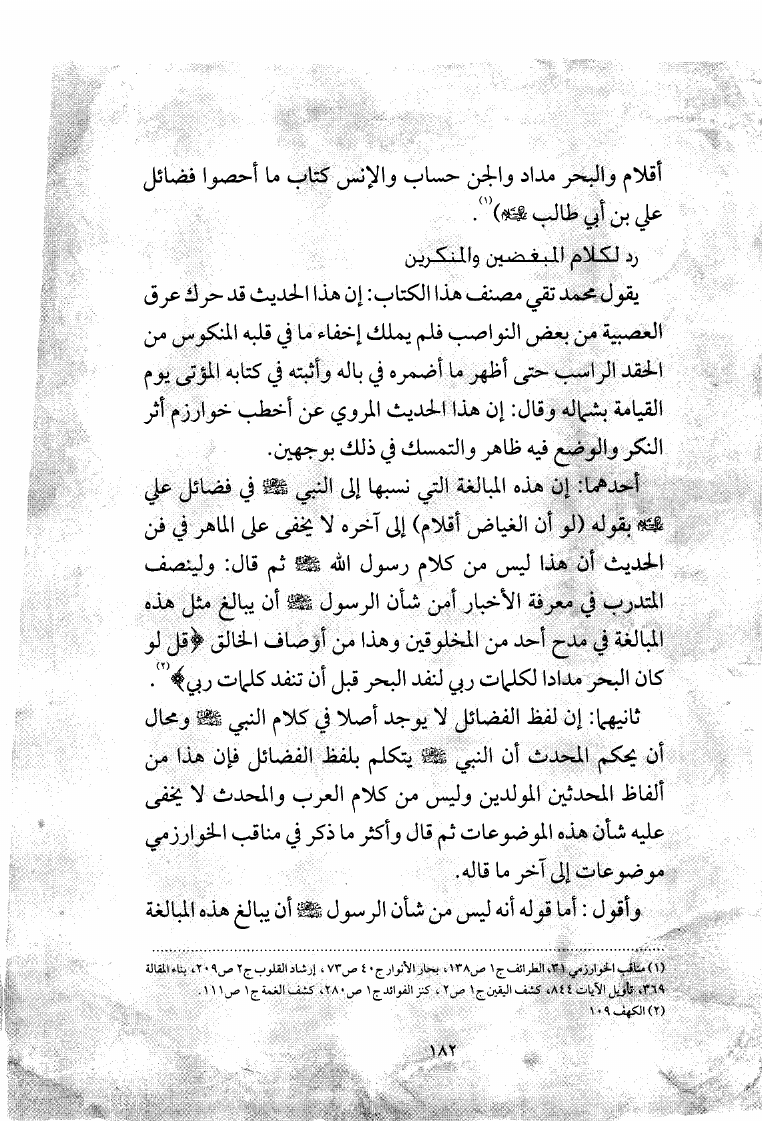 أقلام والبحر مداد والجن حساب والإنس كتاب ما أحصوا فضائل
علي بن أبي طالب ﷺ)(١).
رد لكلام المبغضين والمنكرين
يقول محمد تقي مصنف هذا الكتاب: إن هذا الحديث قد حرك عرق
العصبية من بعض النواصب فلم يملك إخفاء ما في قلبه المنكوس من
الحقد الراسب حتى أظهر ما أضمره في باله وأثبته في كتابه المؤتى يوم
القيامة بشماله وقال: إن هذا الحديث المروي عن أخطب خوارزم أثر
النكر والوضع فيه ظاهر والتمسك في ذلك بوجهين.
أحدهما: إن هذه المبالغة التي نسبها إلى النبي ﷺ في فضائل علي
بقوله (لو أن الغياض أقلام) إلى آخره لا يخفى على الماهر في فن
الحديث أن هذا ليس من كلام رسول الله ﷺ ثم قال: ولينصف
المتدرب في معرفة الأخبار أمن شأن الرسول ﷺ أن يبالغ مثل هذه
المبالغة في مدح أحد من المخلوقين وهذا من أوصاف الخالق ﴿قل لو
كان البحر مدادا لكلمات ربي لنفد البحر قبل أن تنفد كلمات ربي﴾(٢).
ثانيهما: إن لفظ الفضائل لا يوجد أصلا في كلام النبي ﷺ ومحال
أن يحكم المحدث أن النبي ﷺ يتكلم بلفظ الفضائل فإن هذا من
ألفاظ المحدثين المولدين وليس من كلام العرب والمحدث لا يخفى
عليه شأن هذه الموضوعات ثم قال وأكثر ما ذكر في مناقب الخوارزمي
موضوعات إلى آخر ما قاله.
وأقول: أما قوله أنه ليس من شأن الرسول ﷺ أن يبالغ هذه المبالغة
(١) مناقب الخوارزمي ٣١، الطرائف ج١ ص١٣٨، بحار الأنوار ج٤٠ ص٧٣، إرشاد القلوب ج٢ ص٢٠٩، بناء المقالة
٣٦٩، تأويل الآيات ٨٤٤، كشف اليقين ج١ ص٢، كنز الفوائد ج١ ص٢٨٠، كشف الغمة ج١ ص١١١.
(٢) الكهف ١٠٩
١٨٢